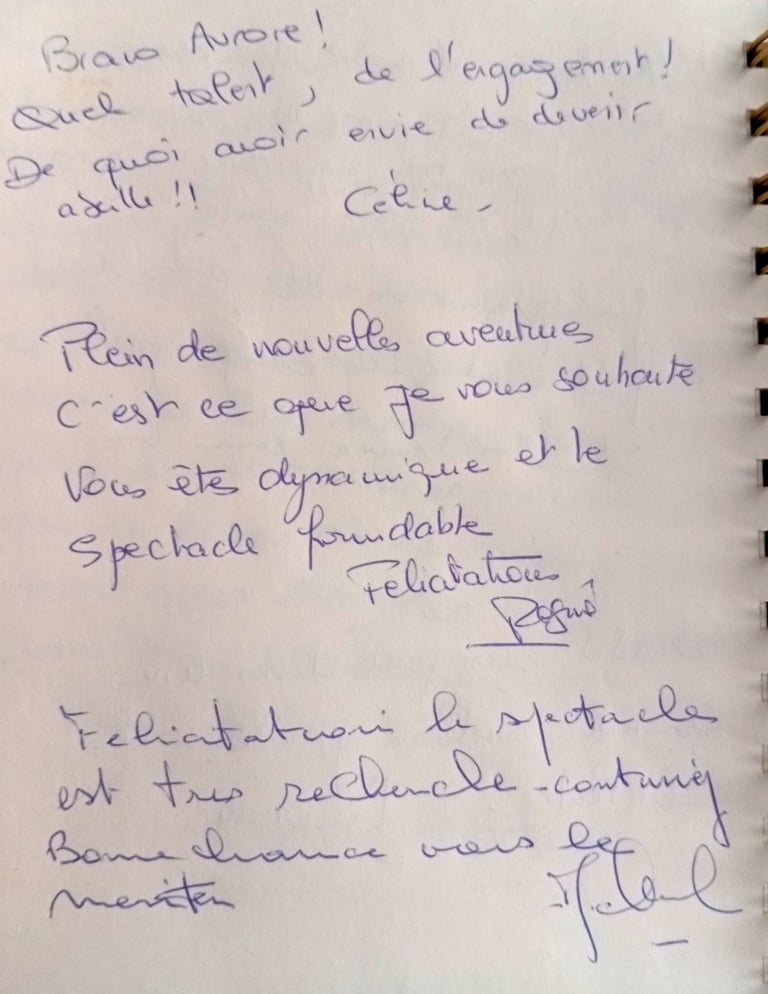 Bravo Aurore !
Quel talent, de l'engagement !
De quoi avoir envie de devenir
abeille !! Céline -
Plein de nouvelles aventures
c'est ce que je vous souhaite
Vous êtes dynamique et le
Spectacle formidable
Félicitations
Felicitation le spectacles
est tres recherche - continuez
Bonne chance vous le
meritez